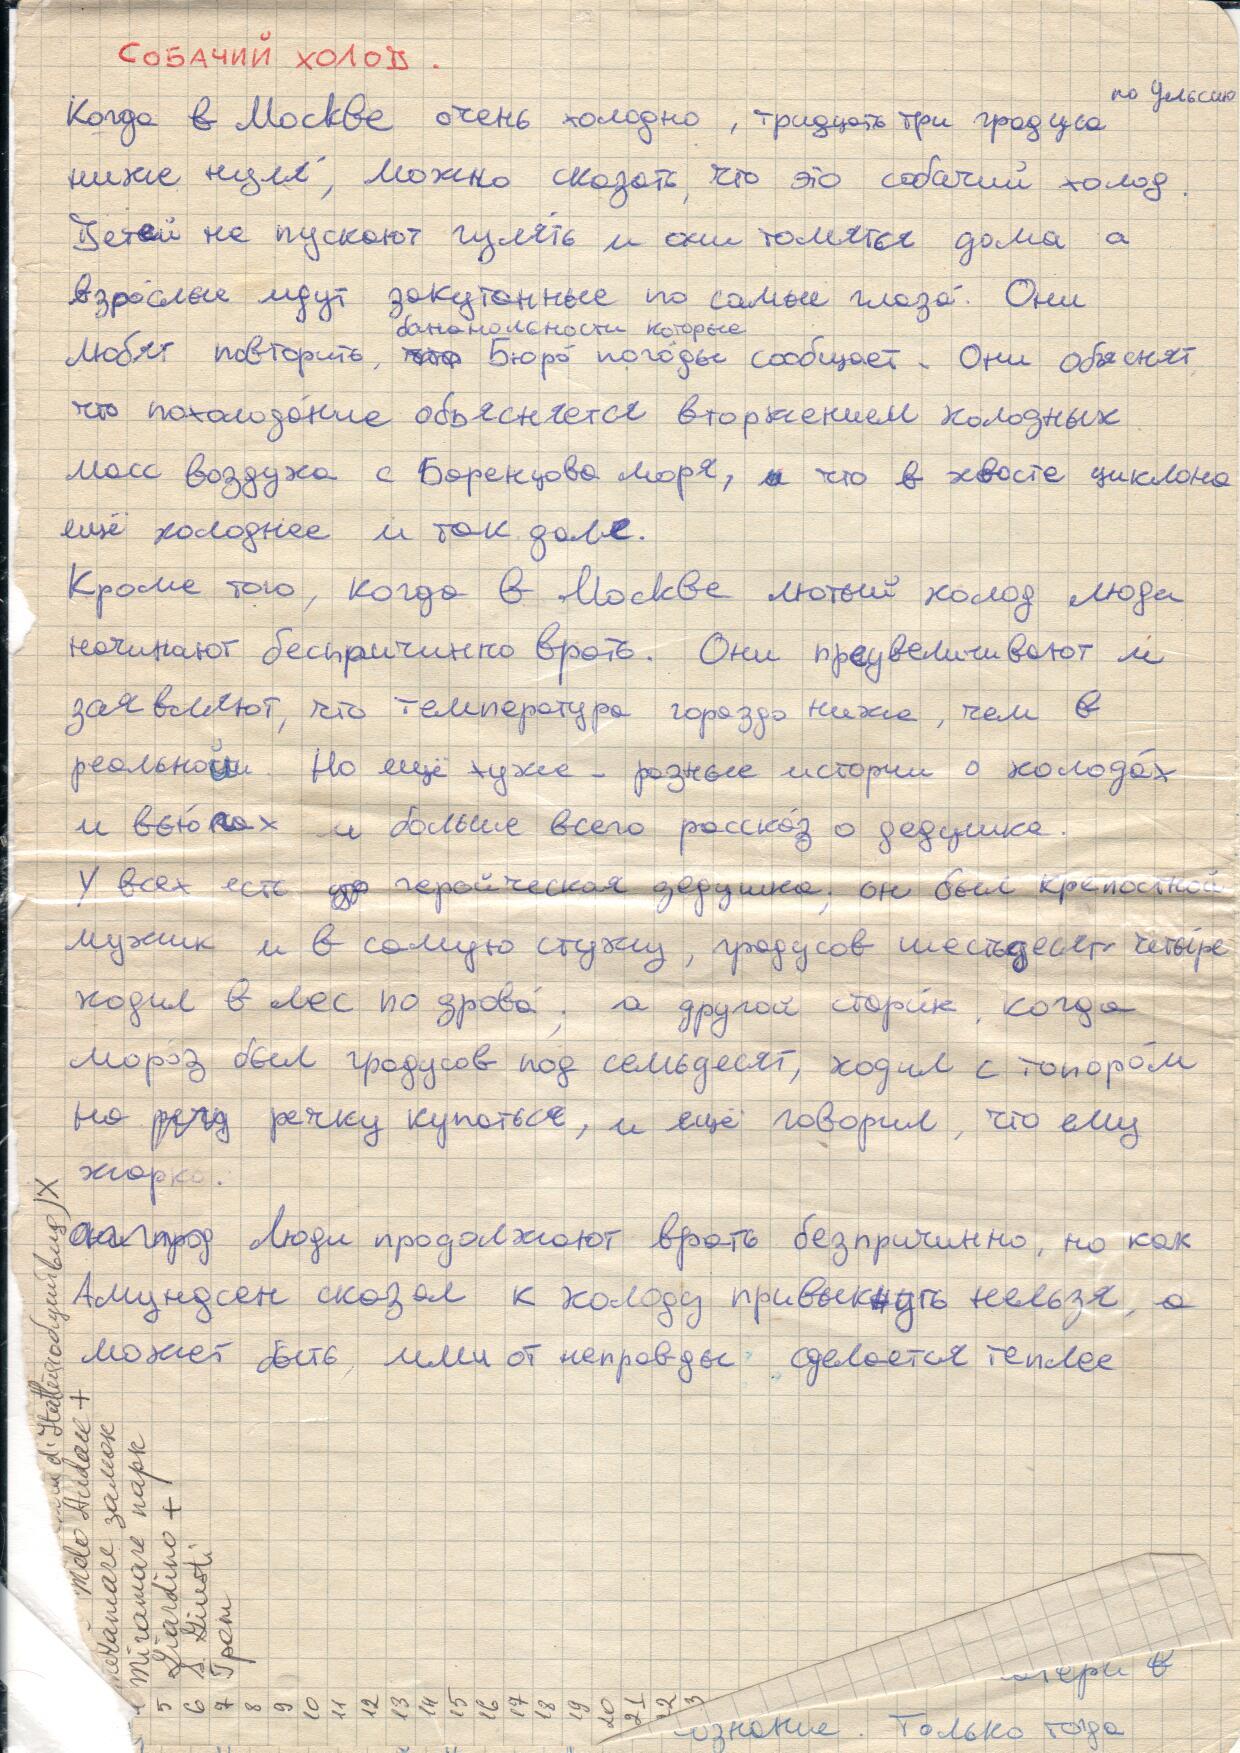 СОБАЧИЙ ХОЛОД.
по Цельсию
Когда в Москве очень холодно, тридцать три градуса
ниже нуля, можно сказать, что это собачий холод.
Детей не пускают гулять и они томятся дома а
взрослые идут закутанные по самые глаза. Они
банальности которые
любят повторить, Бюро погоды сообщает. Они объяснят,
что похолодание объясняется вторжением холодных
масс воздуха с Баренцова моря, и что в хвосте циклона
ещё холоднее и так дале.
Кроме того, когда в Москве лютый холод люди
начинают беспричинно врать. Они преувеличивают и
заявляют, что температура гораздо ниже, чем в
Но ещё хуже - разные истории о холодах
и вьюгах и больше всего рассказ о дедушке.
У всех есть геройческая дедушка, он был крепостной
мужик и в самую стужу, градусов шестьдесят четыре
ходил в лес по дрова, а другой старик, когда
мороз был градусов под семьдесят, ходил с топором
на речку купаться, и ещё говорил, что ему
жарко.
Люди продолжают врать безпричинно, но как
Амундсен сказал к холоду привыкнуть нельзя, а
может быть, ими от неправды сделается теплее
замок
Miramare парк
5 Giardino +
6 S. Giusti
7
8
9
10
11
12
13
14
15
16
17
18
19
20
21
Только тогда